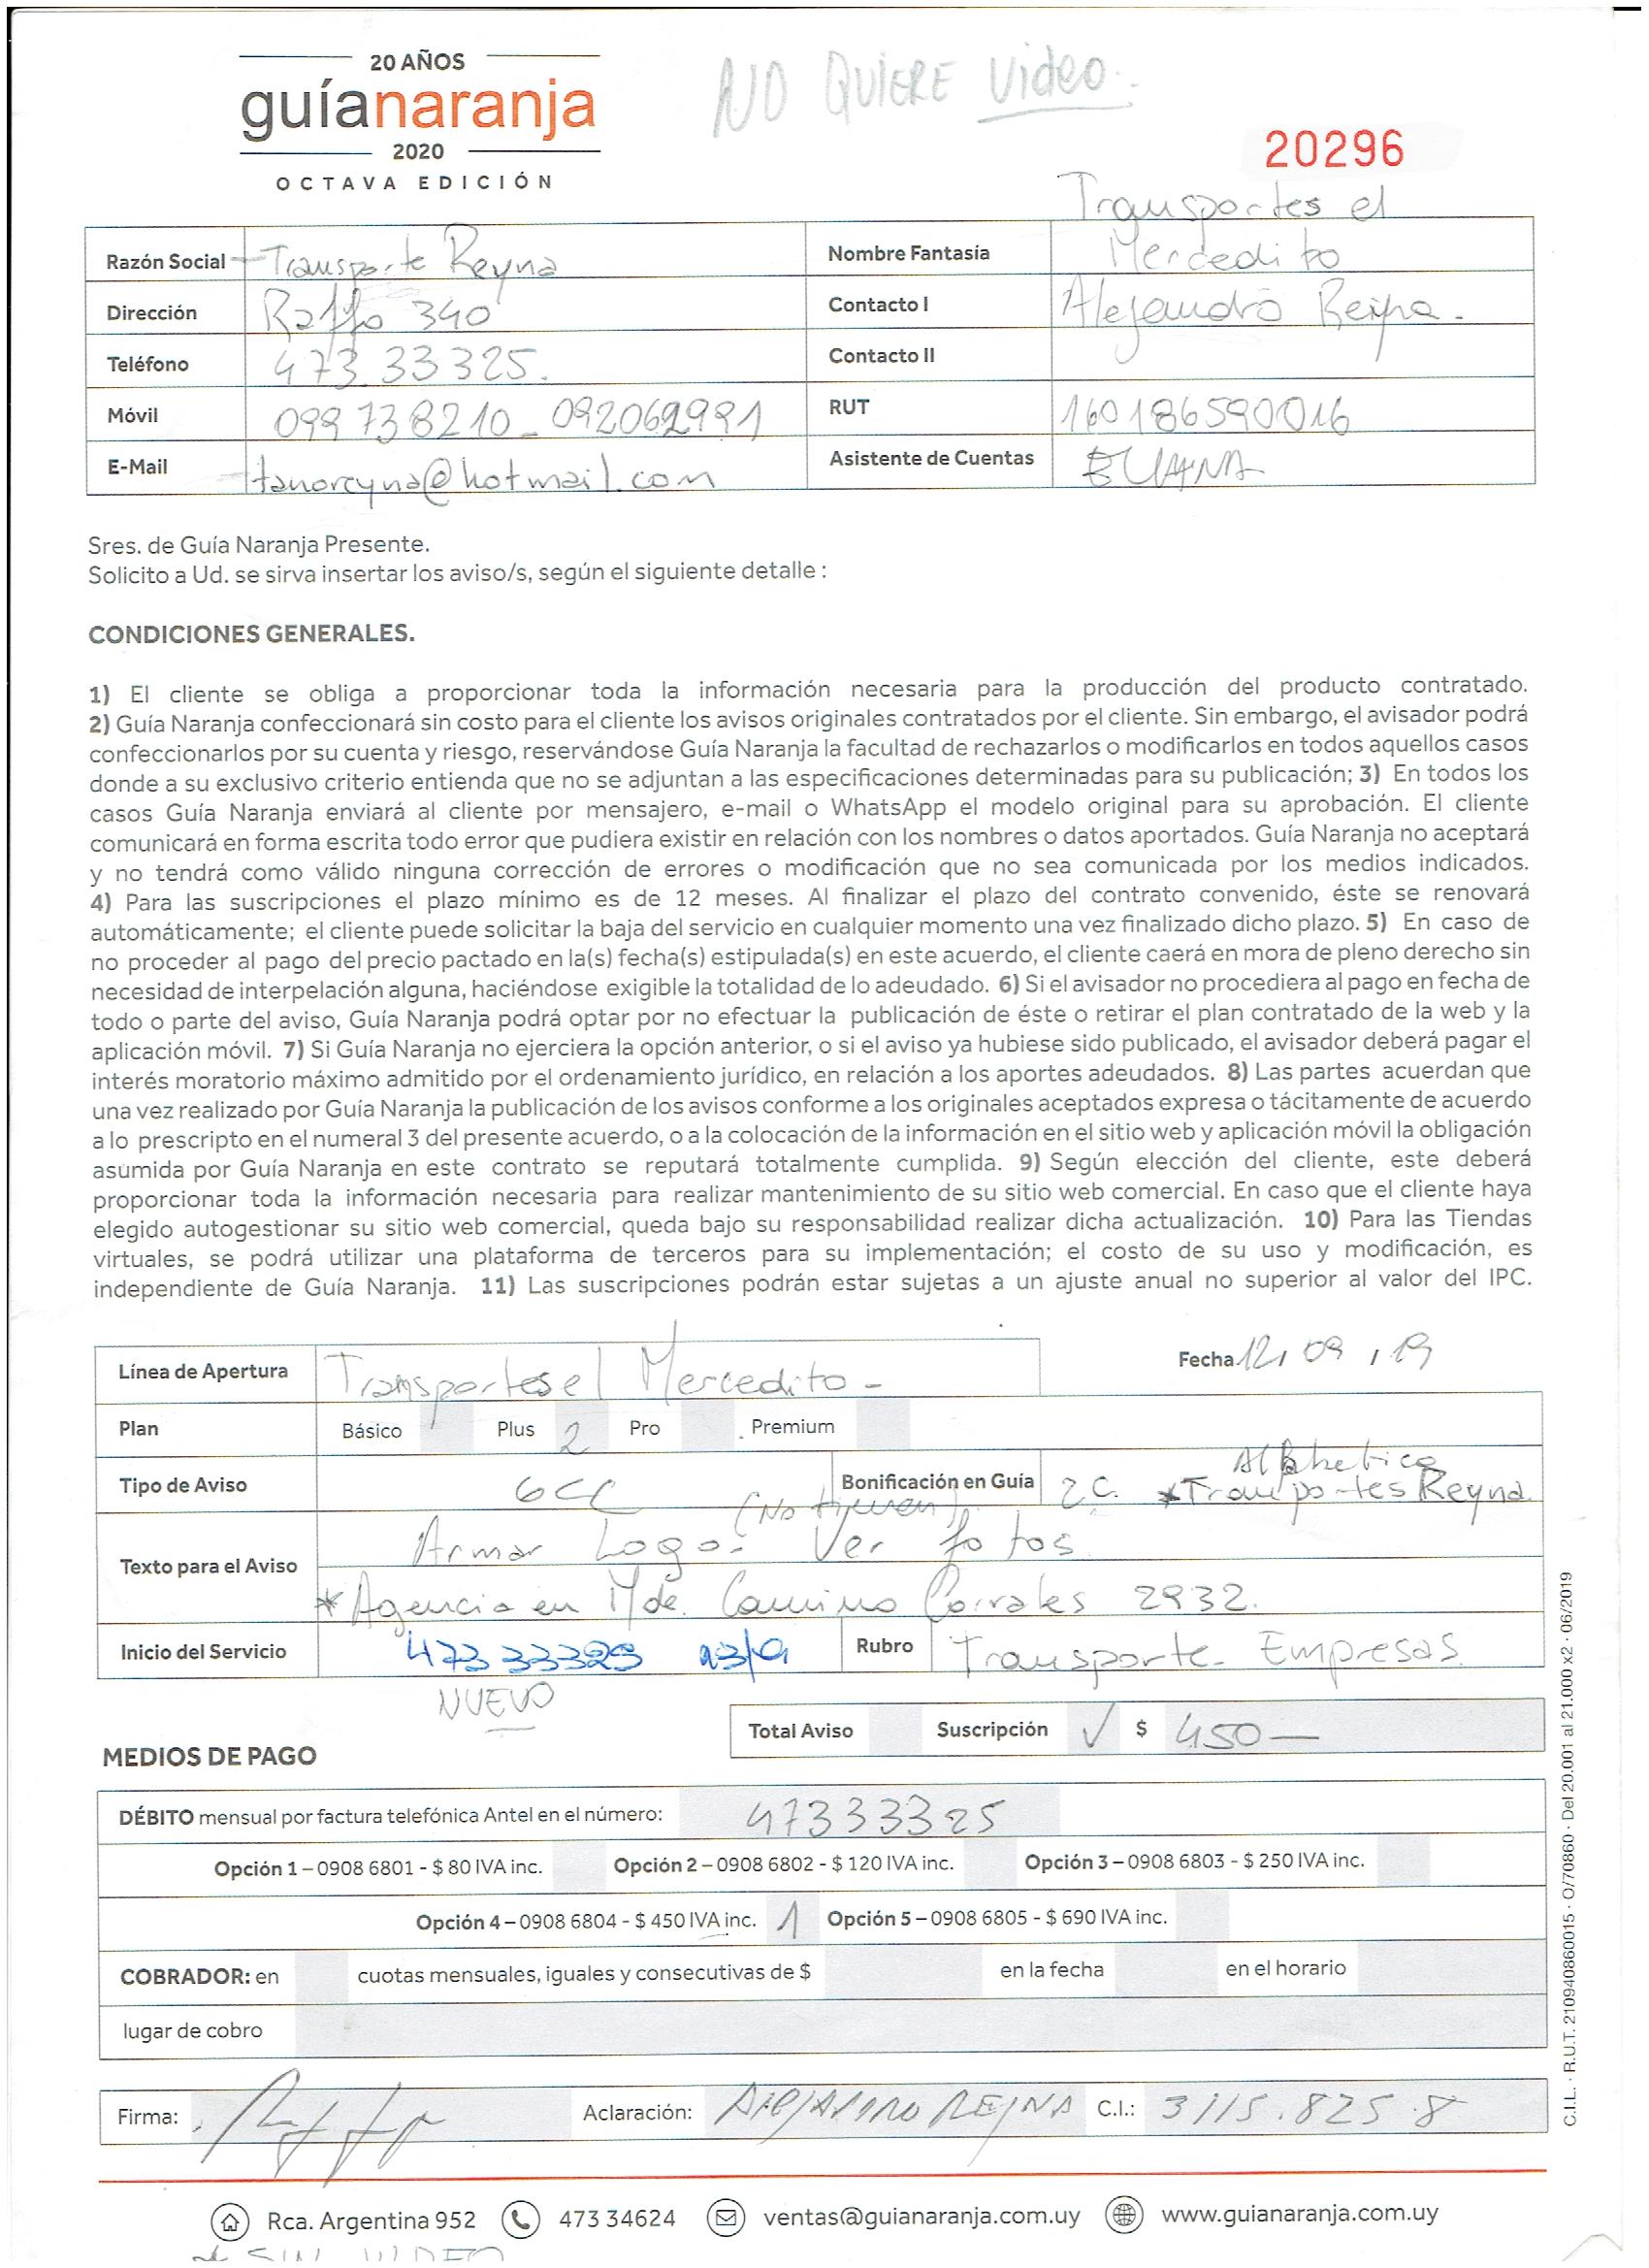 NO QUIERE video.
20 AÑOS
guíanaranja
2020
OCTAVA EDICIÓN
20296
Razón Social Transporte Reyna
Nombre Fantasía Transportes el Mercedito
Dirección Raffo 340
Contacto I Alejandro Reyna.
Teléfono 473 33325.
Contacto II
Móvil 099 738210 - 092062991
RUT 160186590016
E-Mail tanoreyna@hotmail.com
Asistente de Cuentas
Sres. de Guía Naranja Presente.
Solicito a Ud. se sirva insertar los aviso/s, según el siguiente detalle :
CONDICIONES GENERALES.
1) El cliente se obliga a proporcionar toda la información necesaria para la producción del producto contratado.
2) Guía Naranja confeccionará sin costo para el cliente los avisos originales contratados por el cliente. Sin embargo, el avisador podrá
confeccionarlos por su cuenta y riesgo, reservándose Guía Naranja la facultad de rechazarlos o modificarlos en todos aquellos casos
donde a su exclusivo criterio entienda que no se adjuntan a las especificaciones determinadas para su publicación; 3) En todos los
casos Guía Naranja enviará al cliente por mensajero, e-mail o WhatsApp el modelo original para su aprobación. El cliente
comunicará en forma escrita todo error que pudiera existir en relación con los nombres o datos aportados. Guía Naranja no aceptará
y no tendrá como válido ninguna corrección de errores o modificación que no sea comunicada por los medios indicados.
4) Para las suscripciones el plazo mínimo es de 12 meses. Al finalizar el plazo del contrato convenido, éste se renovará
automáticamente; el cliente puede solicitar la baja del servicio en cualquier momento una vez finalizado dicho plazo. 5) En caso de
no proceder al pago del precio pactado en la(s) fecha(s) estipulada(s) en este acuerdo, el cliente caerá en mora de pleno derecho sin
necesidad de interpelación alguna, haciéndose exigible la totalidad de lo adeudado. 6) Si el avisador no procediera al pago en fecha de
todo o parte del aviso, Guía Naranja podrá optar por no efectuar la publicación de éste o retirar el plan contratado de la web y la
aplicación móvil. 7) Si Guía Naranja no ejerciera la opción anterior, o si el aviso ya hubiese sido publicado, el avisador deberá pagar el
interés moratorio máximo admitido por el ordenamiento jurídico, en relación a los aportes adeudados. 8) Las partes acuerdan que
una vez realizado por Guía Naranja la publicación de los avisos conforme a los originales aceptados expresa o tácitamente de acuerdo
a lo prescripto en el numeral 3 del presente acuerdo, o a la colocación de la información en el sitio web y aplicación móvil la obligación
asumida por Guía Naranja en este contrato se reputará totalmente cumplida. 9) Según elección del cliente, este deberá
proporcionar toda la información necesaria para realizar mantenimiento de su sitio web comercial. En caso que el cliente haya
elegido autogestionar su sitio web comercial, queda bajo su responsabilidad realizar dicha actualización. 10) Para las Tiendas
virtuales, se podrá utilizar una plataforma de terceros para su implementación; el costo de su uso y modificación, es
independiente de Guía Naranja. 11) Las suscripciones podrán estar sujetas a un ajuste anual no superior al valor del IPC.
Línea de Apertura Transportes el Mercedito -
Fecha 12 / 09 / 19
Plan Básico Plus 2 Pro Premium
Tipo de Aviso 6CC
Bonificación en Guía 2C. Alfabetica *Transportes Reyna
Texto para el Aviso Armar Logo. (No tienen) Ver fotos
*Agencia en Mdeo. Camino Corrales 2932.
Inicio del Servicio 473 33325 23/9
Rubro Transporte. Empresas
NUEVO
Total Aviso Suscripción ✓ $ 450—
MEDIOS DE PAGO
DÉBITO mensual por factura telefónica Antel en el número: 47333325
Opción 1 – 0908 6801 - $ 80 IVA inc. Opción 2 – 0908 6802 - $ 120 IVA inc. Opción 3 – 0908 6803 - $ 250 IVA inc.
Opción 4 – 0908 6804 - $ 450 IVA inc. 1 Opción 5 – 0908 6805 - $ 690 IVA inc.
COBRADOR: en cuotas mensuales, iguales y consecutivas de $ en la fecha en el horario
lugar de cobro
Firma: Aclaración: Alejandro REYNA C.I.: 3115.825 8
C.I.L. · R.U.T. 210940860015 · O/70860 · Del 20.001 al 21.000 x2 · 06/2019
Rca. Argentina 952 473 34624 ventas@guianaranja.com.uy www.guianaranja.com.uy
* SIN VIDEO